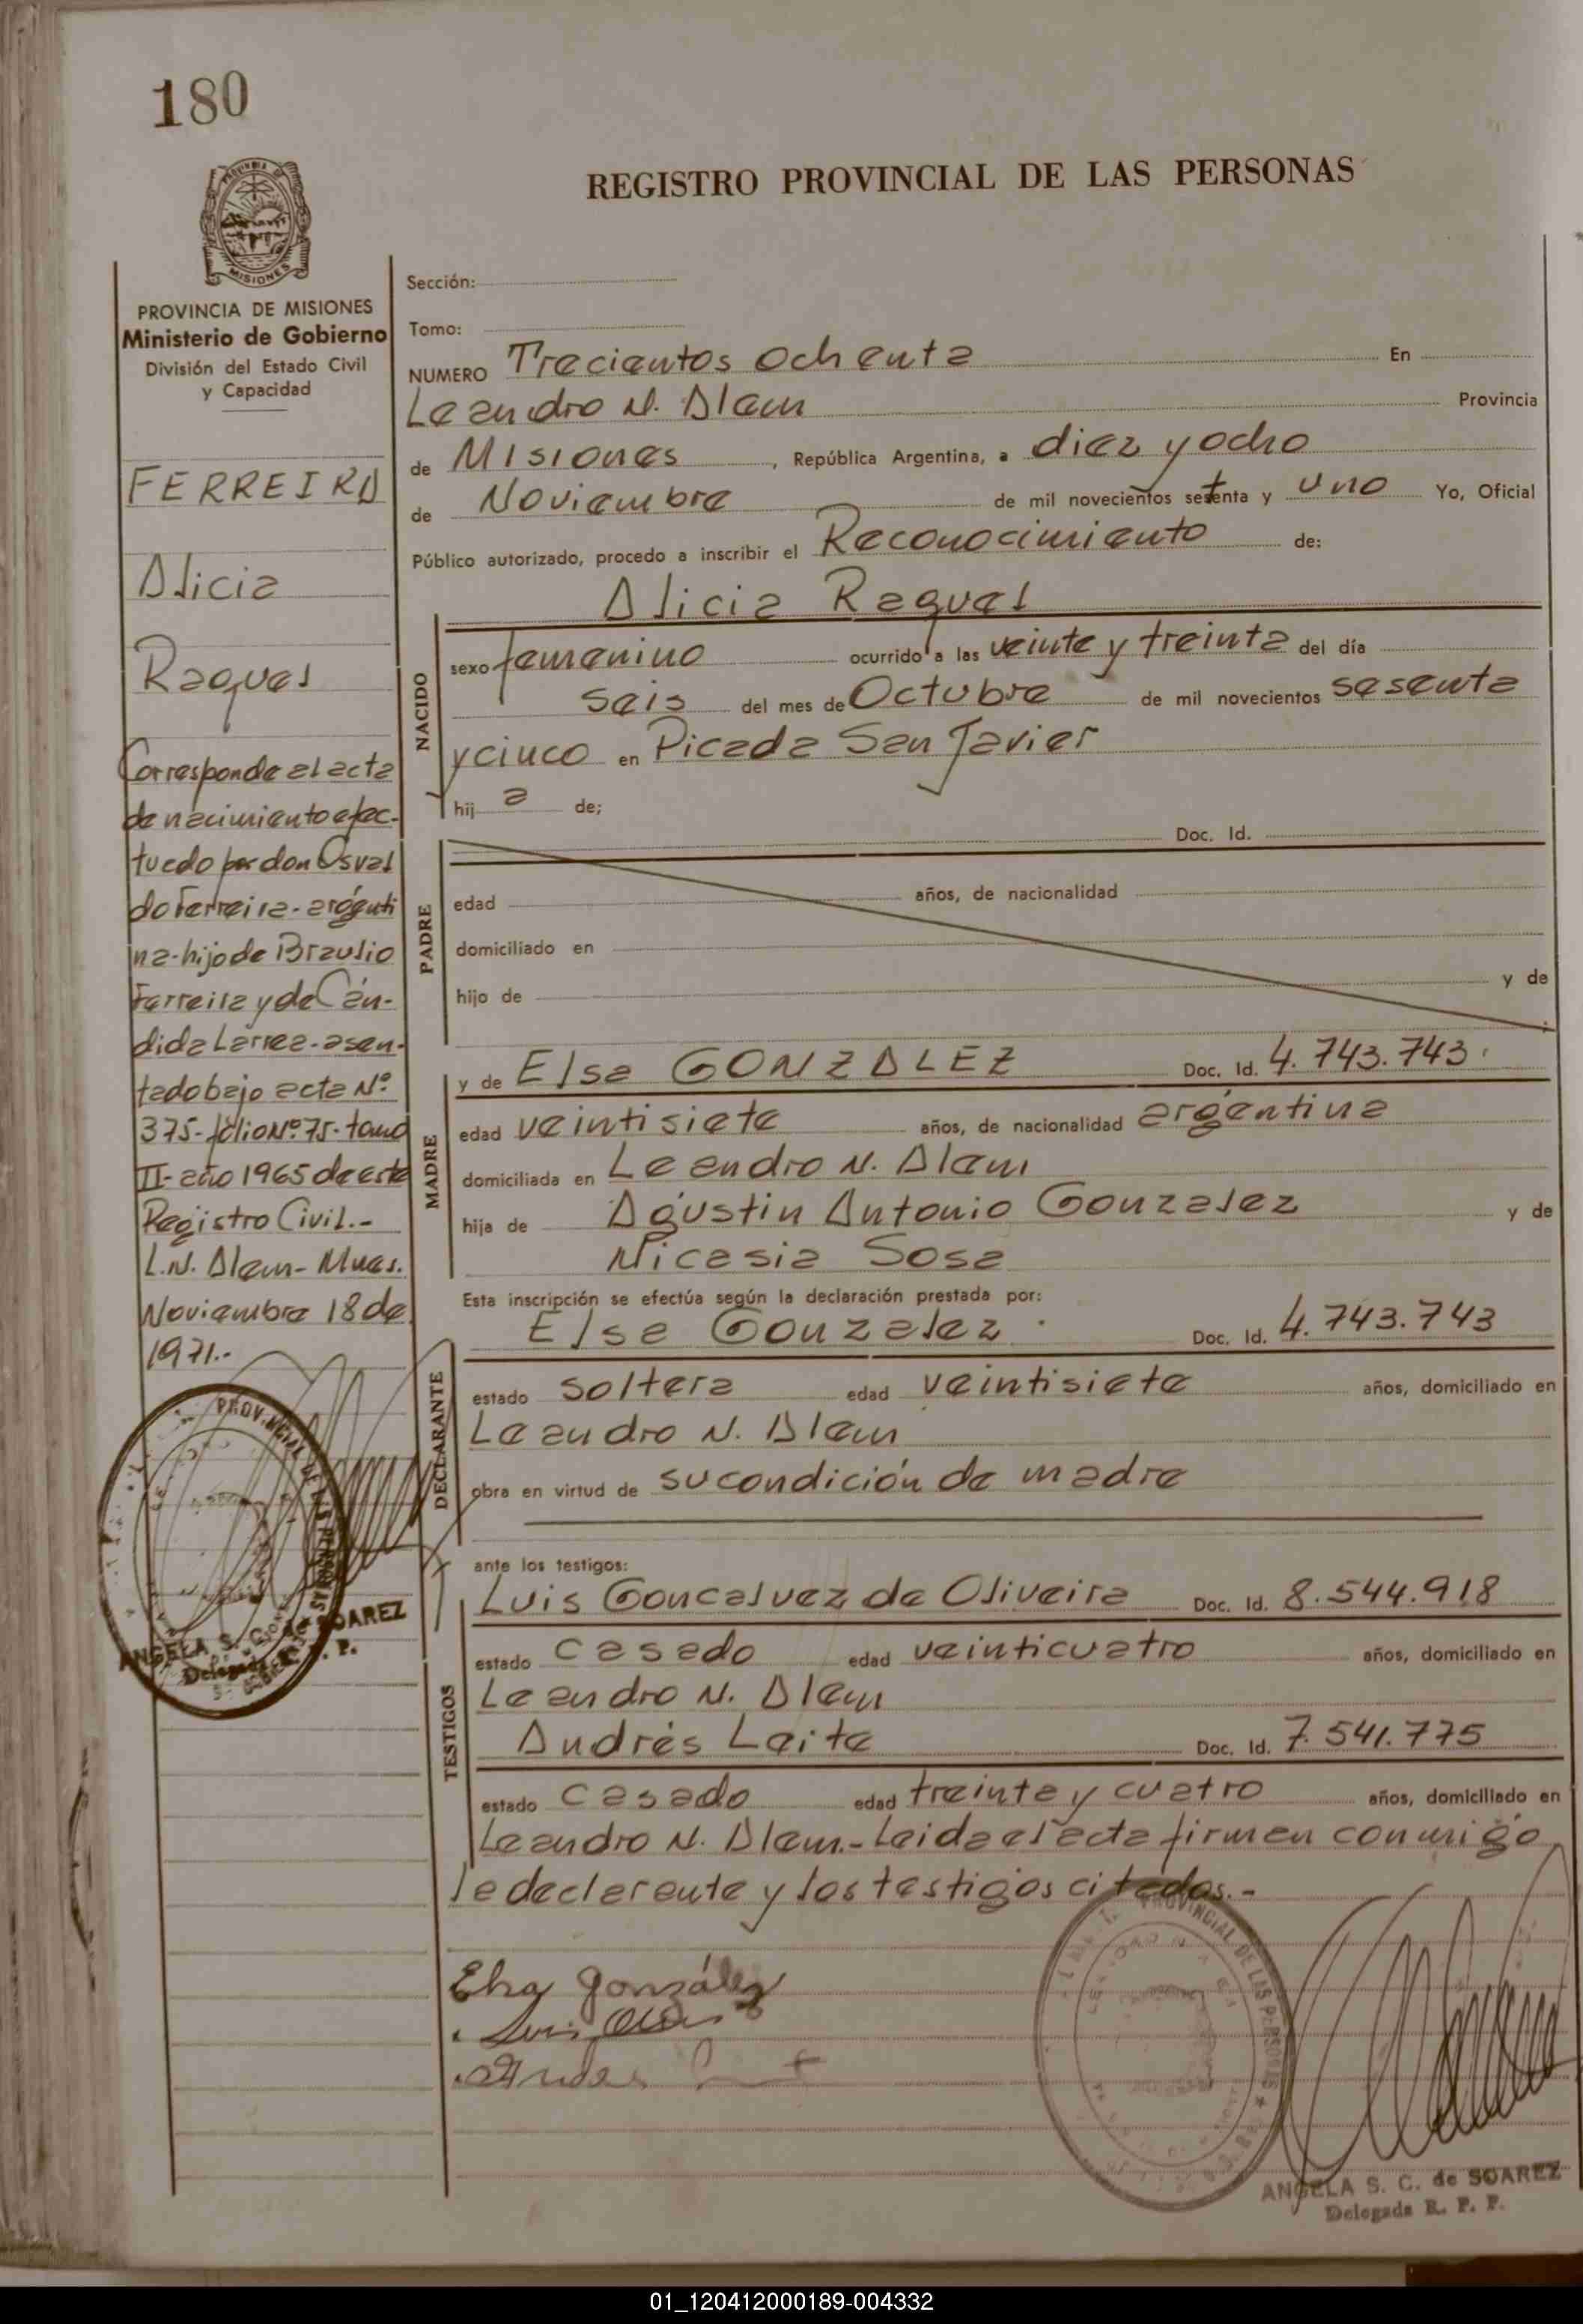 180
REGISTRO PROVINCIAL DE LAS PERSONAS
MISIONES
PROVINCIA DE MISIONES
Ministerio de Gobierno
División del Estado Civil
y Capacidad
FERREIRA
Alicia
Raquel
Corresponde al acta
de nacimiento efec-
tuado por don Osval
do Ferreira - argenti
na - hijo de Braulio
Ferreira y de Cán-
dida Larrea - asen-
tado bajo acta Nº
375 - folio Nº 75 - tomo
II - año 1965 de este
Registro Civil.-
L.N. Alem - Mnes.
Noviembre 18 de
1971.-
PROVINCIAL DE LAS PERSONAS
ANGELA S. C. de SOAREZ
Delegada R. P. P.
Sección:
Tomo:
NUMERO Trecientos ochenta En
Leandro N. Alem Provincia
de Misiones, República Argentina, a diez y ocho
de Noviembre de mil novecientos setenta y uno Yo, Oficial
Público autorizado, procedo a inscribir el Reconocimiento de:
Alicia Raquel
NACIDO
sexo femenino ocurrido a las veinte y treinta del día
seis del mes de Octubre de mil novecientos sesenta
y cinco en Picada San Javier
hij a de;
PADRE
Doc. Id.
edad años, de nacionalidad
domiciliado en
hijo de y de
MADRE
y de Elsa GONZALEZ Doc. Id. 4.743.743.
edad veintisiete años, de nacionalidad argentina
domiciliada en Leandro N. Alem
hija de Agustin Antonio Gonzalez y de
Nicasia Sosa
Esta inscripción se efectúa según la declaración prestada por:
DECLARANTE
Elsa Gonzalez Doc. Id. 4.743.743
estado soltera edad veintisiete años, domiciliado en
Leandro N. Alem
obra en virtud de su condición de madre
ante los testigos:
TESTIGOS
Luis Goncalvez de Oliveira Doc. Id. 8.544.918
estado casado edad veinticuatro años, domiciliado en
Leandro N. Alem
Andrés Leite Doc. Id. 7.541.775
estado casado edad treinta y cuatro años, domiciliado en
Leandro N. Alem.- Leida el acta firman conmigo
la declarante y los testigos citados.-
Elsa González
Luis
PROVINCIAL DE LAS PERSONAS
ANGELA S. C. de SOAREZ
Delegada R. P. P.
01_120412000189-004332